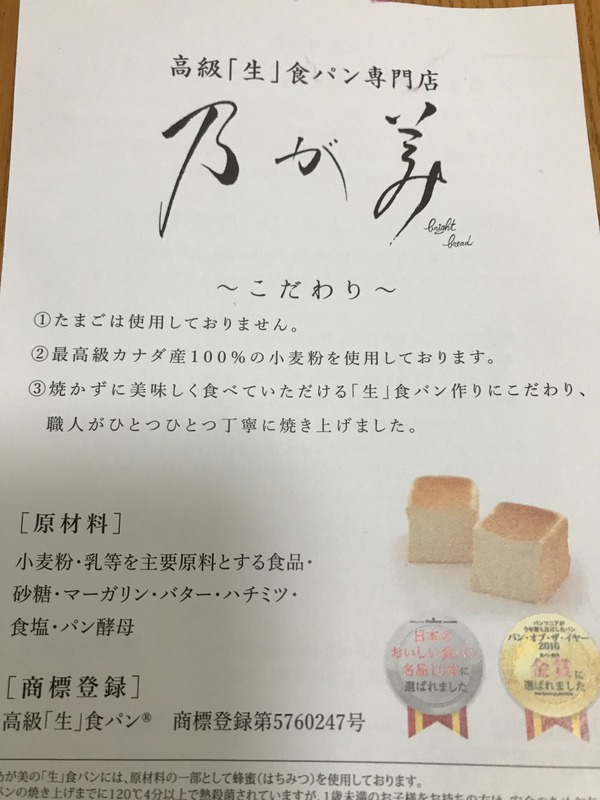 高級「生」食パン専門店
乃が美
bright
bread
～こだわり～
①たまごは使用しておりません。
②最高級カナダ産100%の小麦粉を使用しております。
③焼かずに美味しく食べていただける「生」食パン作りにこだわり、
職人がひとつひとつ丁寧に焼き上げました。
［原材料］
小麦粉・乳等を主要原料とする食品・
砂糖・マーガリン・バター・ハチミツ・
食塩・パン酵母
日本の
おいしい食パン
名品10本に
選ばれました
パンマニアが
パン・オブ・ザ・イヤー
2016
金賞に
選ばれました
［商標登録］
高級「生」食パン® 商標登録第5760247号
乃が美の「生」食パンには、原材料の一部として蜂蜜(はちみつ)を使用しております。
パンの焼き上げまでに120℃4分以上で熱殺菌されていますが、1歳未満のお子様をお持ちの方は、